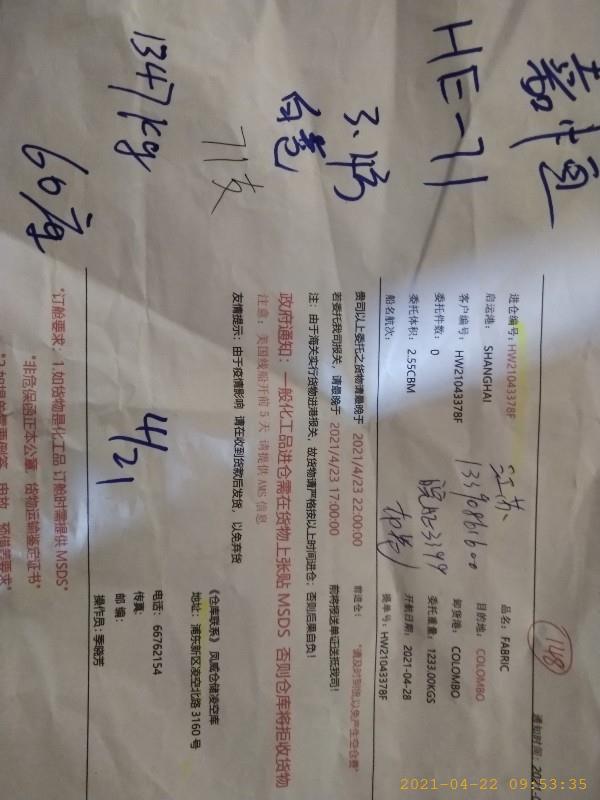 HE-71
白卷
71支
1347kg
4/21
1148
通知时间：
进仓编号：HW21043378F
品名：FABRIC
启运港：SHANGHAI
目的地：COLOMBO
客户编号：HW21043378F
卸货港：COLOMBO
委托件数：0
委托重量：1233.00KGS
委托体积：2.55CBM
开航日期：2021-04-28
船名航次：
换单号：HW21043378F
江苏
皖
贵司以上委托之货物请最晚于 2021/4/23 22:00:00 前进仓！
若委托我司报关，请最晚于 2021/4/23 17:00:00 前将报送单证送抵我司！
注：由于海关实行货物进港报关，故货物请严格按以上时间进仓；否则后果自负！
政府通知：一般化工品进仓需在货物上张贴 MSDS 否则仓库将拒收货物
注意：美国线船开前 5 天 请提供 AMS 信息
友情提示：由于疫情影响 请在收到货款后发货，以免弃货
《仓库联系》凤威仓储凌空库
地址：浦东新区凌空北路 3160 号
电话：66762154
传真：
邮编：
操作员：季晓芳
*订舱要求：1.如货物是化工品 订舱时需提供 MSDS*
*非危保函正本公章，货物运输鉴定证书*
2021-04-22 09:53:35